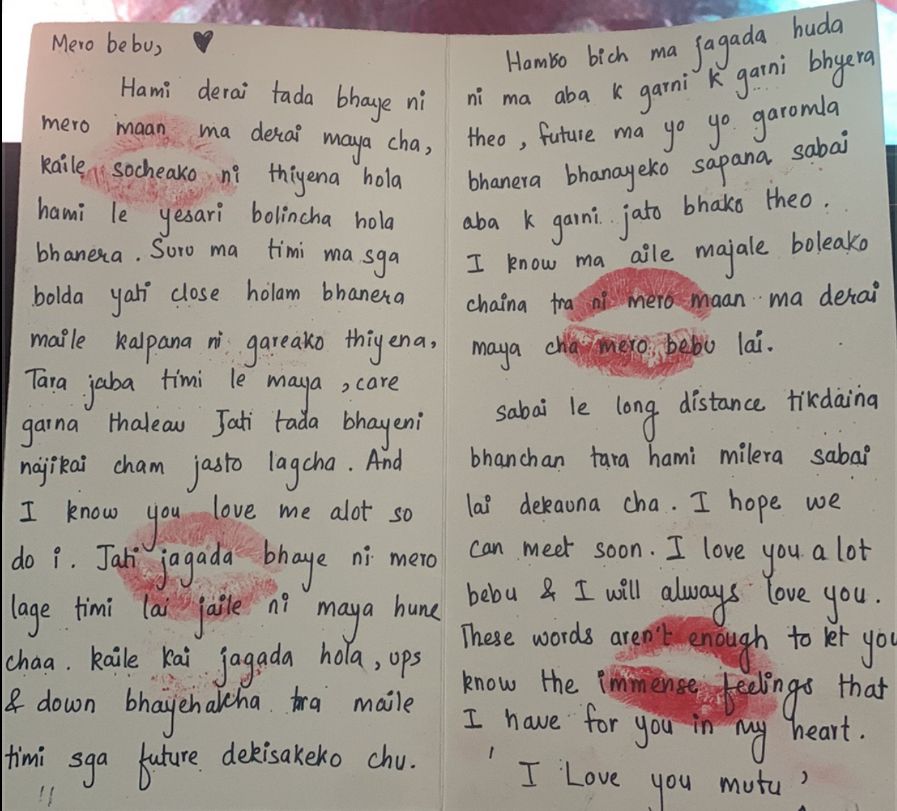 Mero bebu, ♥
Hami derai tada bhaye ni
mero maan ma derai maya cha,
kaile socheako ni thiyena hola
hami le yesari bolincha hola
bhanera. Suru ma timi ma sga
bolda yati close holam bhanera
maile kalpana ni gareako thiyena,
Tara jaba timi le maya, care
garna thaleau Jati tada bhayeni
najikai cham jasto lagcha. And
I know you love me alot so
do i. Jati jagada bhaye ni mero
lage timi lai jaile ni maya hune
chaa. kaile kai jagada hola, ups
& down bhayehalcha tra maile
timi sga future dekisakeko chu.
!!
Hamro bich ma jagada huda
ni ma aba k garni k garni bhyera
theo, future ma yo yo garomla
bhanera bhanayeko sapana sabai
aba k garni jato bhako theo.
I know ma aile majale boleako
chaina tra ni mero maan ma derai
maya cha mero bebu lai.
sabai le long distance tikdaina
bhanchan tara hami milera sabai
lai dekauna cha. I hope we
can meet soon. I love you a lot
bebu & I will always love you.
These words aren't enough to let you
know the immense feelings that
I have for you in my heart.
' I Love you mutu '